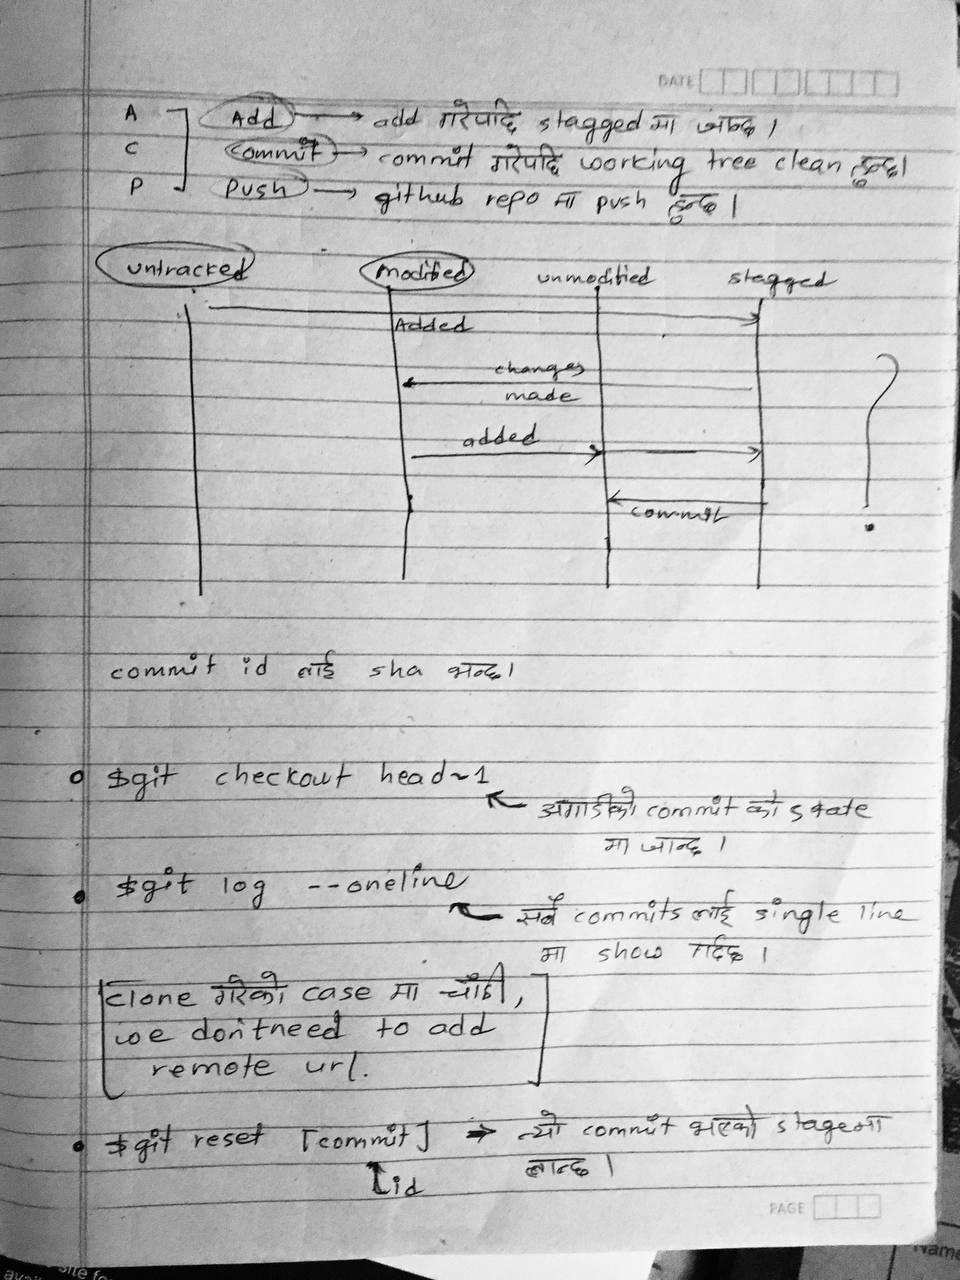 DATE
A Add → add गरेपछि stagged मा जान्छ।
C commit → commit गरेपछि working tree clean हुन्छ।
P push → github repo मा push हुन्छ।
untracked modified unmodified stagged
Added
changes
made
?
added
commit
commit id लाई sha भन्छ।
$git checkout head~1
अगाडीको commit को state
मा जान्छ।
$git log --oneline
सबै commits लाई single line
मा show गर्दछ।
clone गरेको case मा चाँही,
we don't need to add
remote url.
$git reset [commit] → त्यो commit भएको stage मा
लान्छ।
id
PAGE
Name
site fo